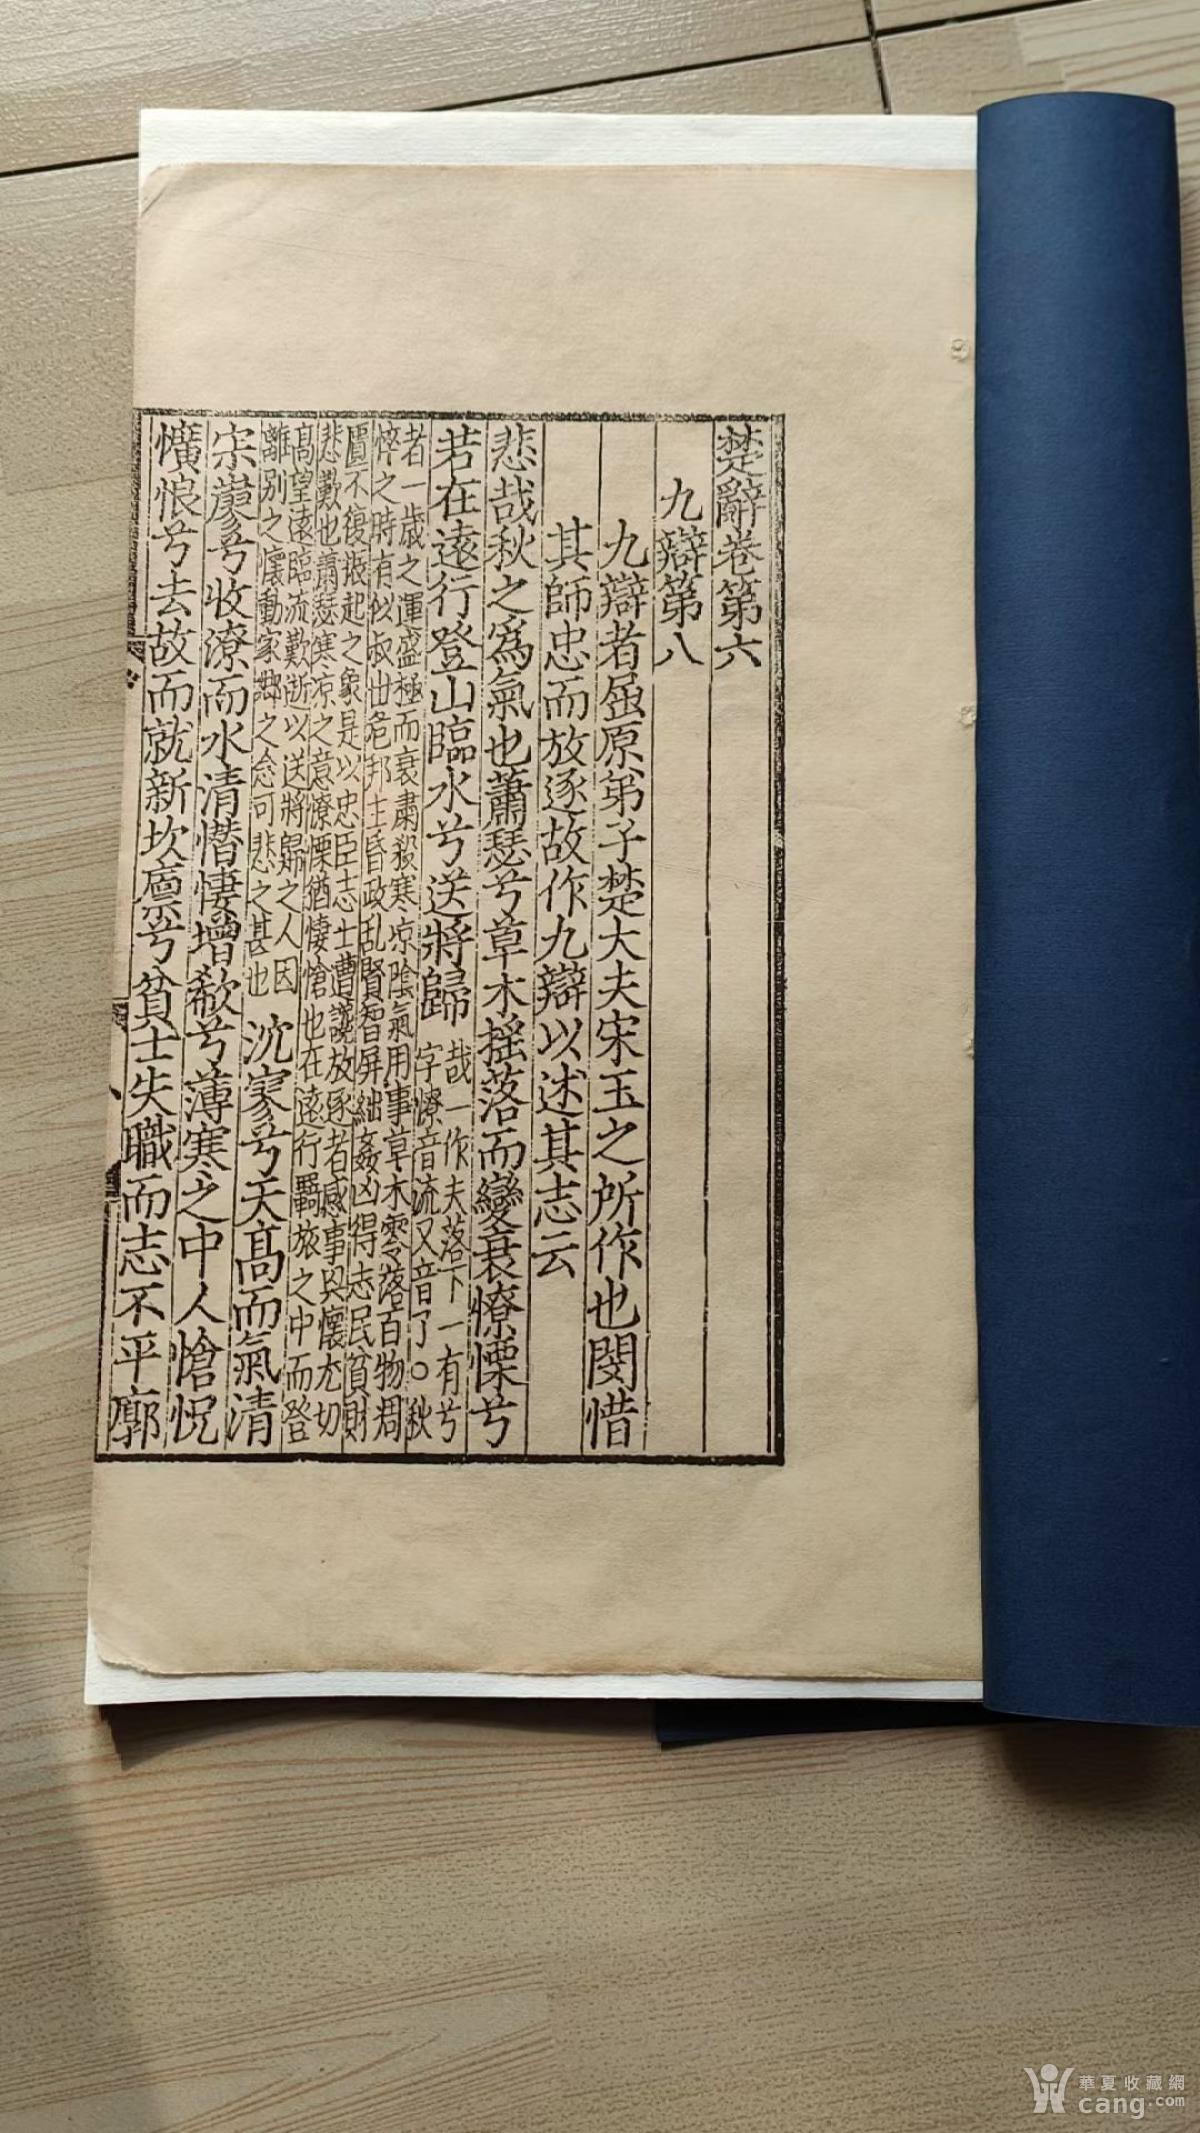 楚辭卷第六
九辯第八
九辯者屈原弟子楚大夫宋玉之所作也閔惜
其師忠而放逐故作九辯以述其志云
悲哉秋之爲氣也蕭瑟兮草木搖落而變衰憭慄兮
若在遠行登山臨水兮送將歸
哉一作夫落下一有兮
字憭音流又音了○秋
者一歳之運盛極而衰肅殺寒凉陰氣用事草木零落百物凋
悴之時有似叔世危邦主昏政乱賢智屏絀姦凶得志民貧財
匱不復振起之象是以忠臣志士遭讒放逐者感事興懷尤切
悲歎也蕭瑟寒凉之意憭慄猶悽愴也在遠行羇旅之中而登
髙望遠臨流歎逝以送將歸之人因
離別之懷動家鄉之念可悲之甚也
泬寥兮天髙而氣清
宋廫兮收潦而水清憯悽增欷兮薄寒之中人愴怳
懭悢兮去故而就新坎廩兮貧士失職而志不平廓
華夏收藏網
cang.com